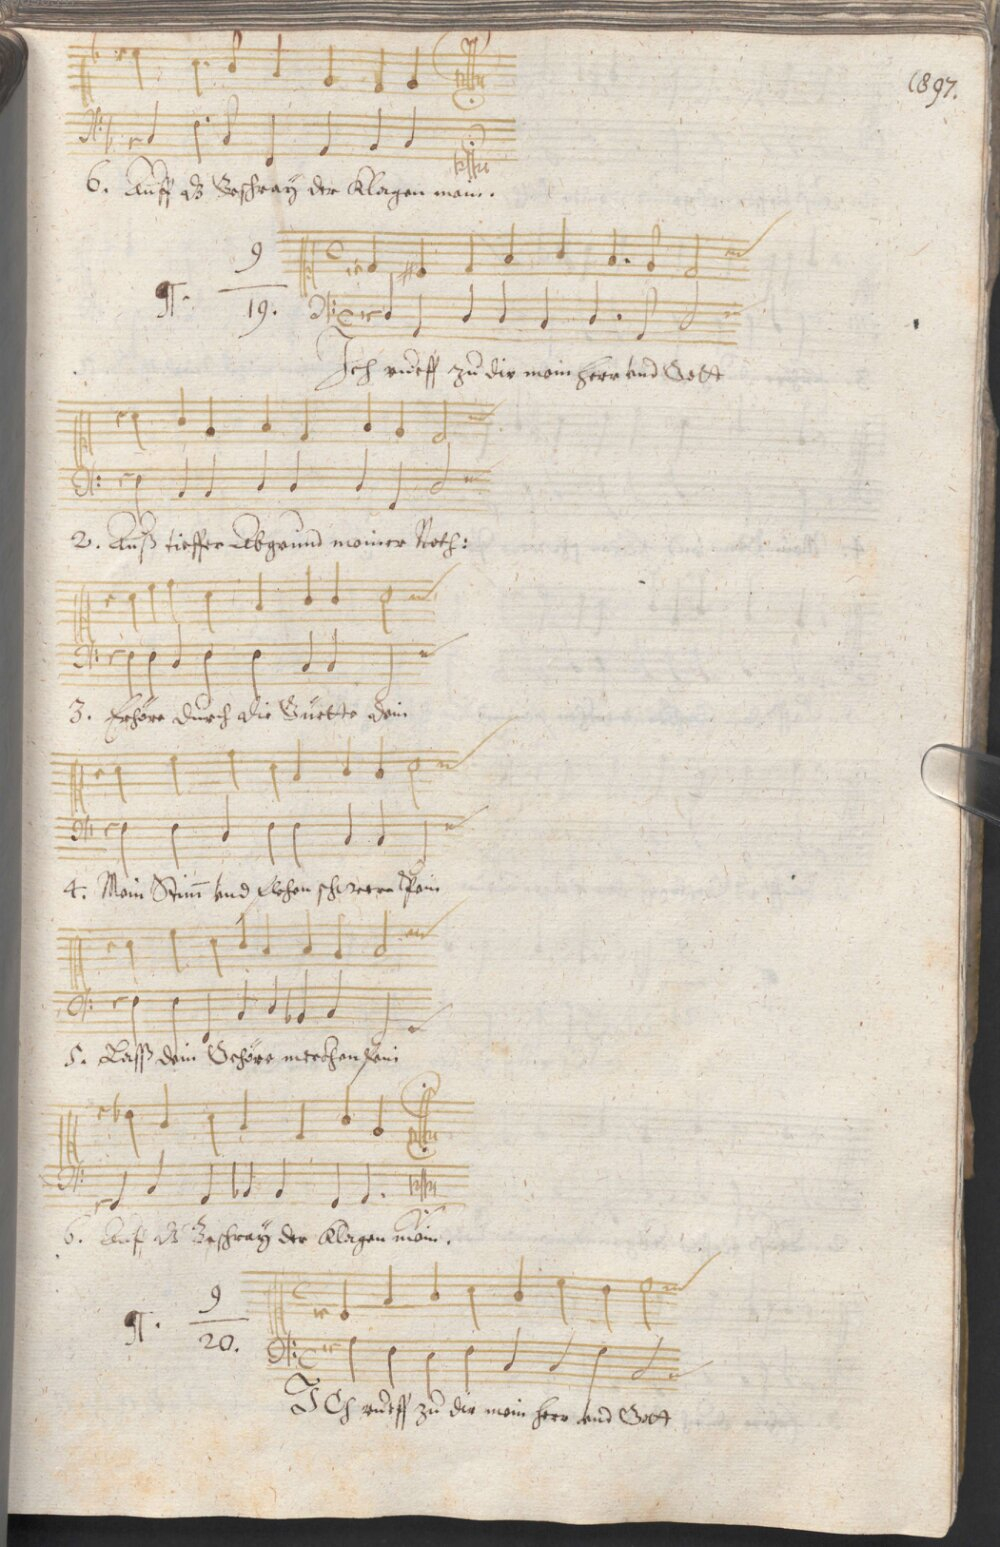 1897.
6. Auff dz Geschray der Klagen mein.
¶. 9
19.
Ich rueff zu dir mein Herr und Gott
2. Auß tieffer Abgrund meiner Noth:
3. Erhöre durch die Guette dein
4. Mein Stim̄ und Flehen schwerer Pein
5. Lass dein Gehöre merckhen fein
6. Auf dz Geschray der Klagen mein.
¶. 9
20.
ICh rueff zu dir mein Herr und Gott